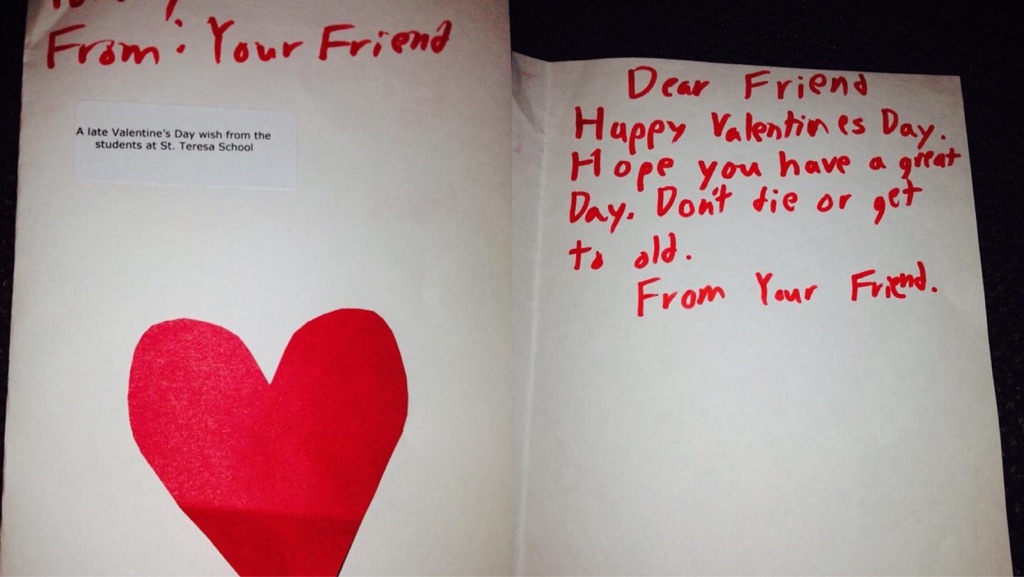 From: Your Friend
A late Valentine's Day wish from the
students at St. Teresa School
Dear Friend
Happy Valentines Day.
Hope you have a great
Day. Don't die or get
to old.
From Your Friend.